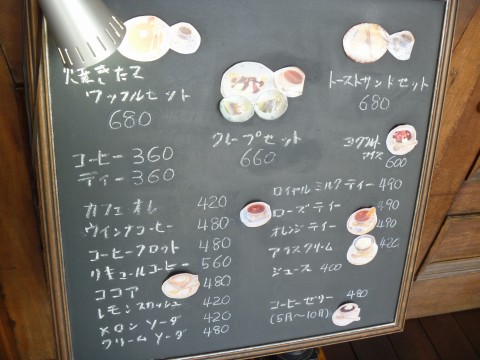 焼きたて
ワッフルセット
680
クレープセット
660
トーストサンドセット
680
ヨーグルト
アイス 600
コーヒー 360
ティー 360
カフェオレ 420
ウインナコーヒー 480
コーヒーフロート 480
リキュールコーヒー 560
ココア 480
レモンスカッシュ 420
メロンソーダ 420
クリームソーダ 480
ロイヤルミルクティー 490
ローズティー 490
オレンジティー 490
アイスクリーム 420
ジュース 400
コーヒーゼリー 480
(5月〜10月)